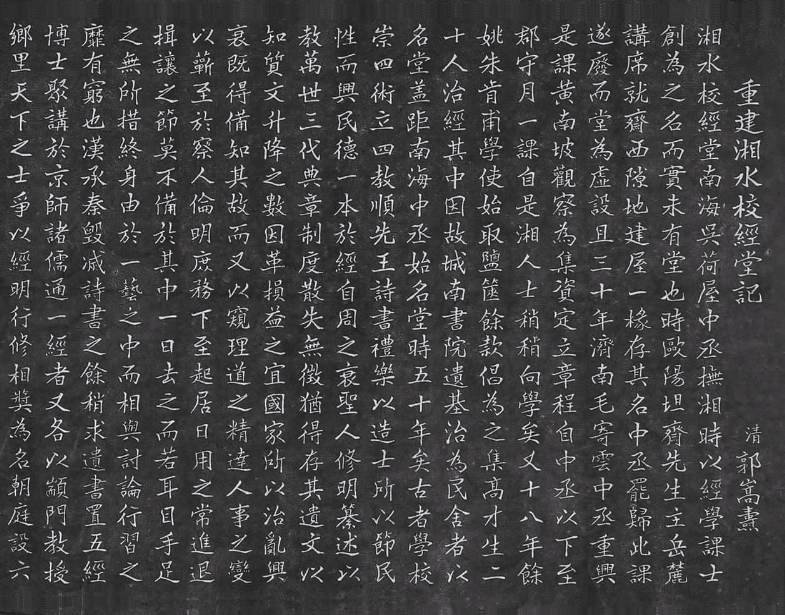 重建湘水校經堂記
清 郭嵩燾
湘水校經堂南海吳荷屋中丞撫湘時以經學課士
創為之名而實未有堂也時歐陽坦齋先生主岳麓
講席就齋西隙地建屋一椽存其名中丞罷歸此課
遂廢而堂為虛設且三十年濟南毛寄雲中丞重興
是課黃南坡觀察為集資定立章程自中丞以下至
郡守月一課自是湘人士稍稍向學矣又十八年餘
姚朱肯甫學使始取鹽篋餘款倡為之集高才生二
十人治經其中因故城南書院遺基治為民舍者以
名堂蓋距南海中丞始名堂時五十年矣古者學校
崇四術立四教順先王詩書禮樂以造士所以節民
性而興民德一本於經自周之衰聖人修明纂述以
教萬世三代典章制度散失無徵猶得存其遺文以
知質文升降之數因革損益之宜國家所以治亂興
衰既得備知其故而又以窺理道之精達人事之變
以蘄至於察人倫明庶務下至起居日用之常進退
揖讓之節莫不備於其中一日去之而若耳目手足
之無所措終身由於一藝之中而相與討論行習之
靡有窮也漢承秦毀滅詩書之餘稍求遺書置五經
博士聚講於京師諸儒通一經者又各以顓門教授
鄉里天下之士爭以經明行修相獎為名朝庭設六